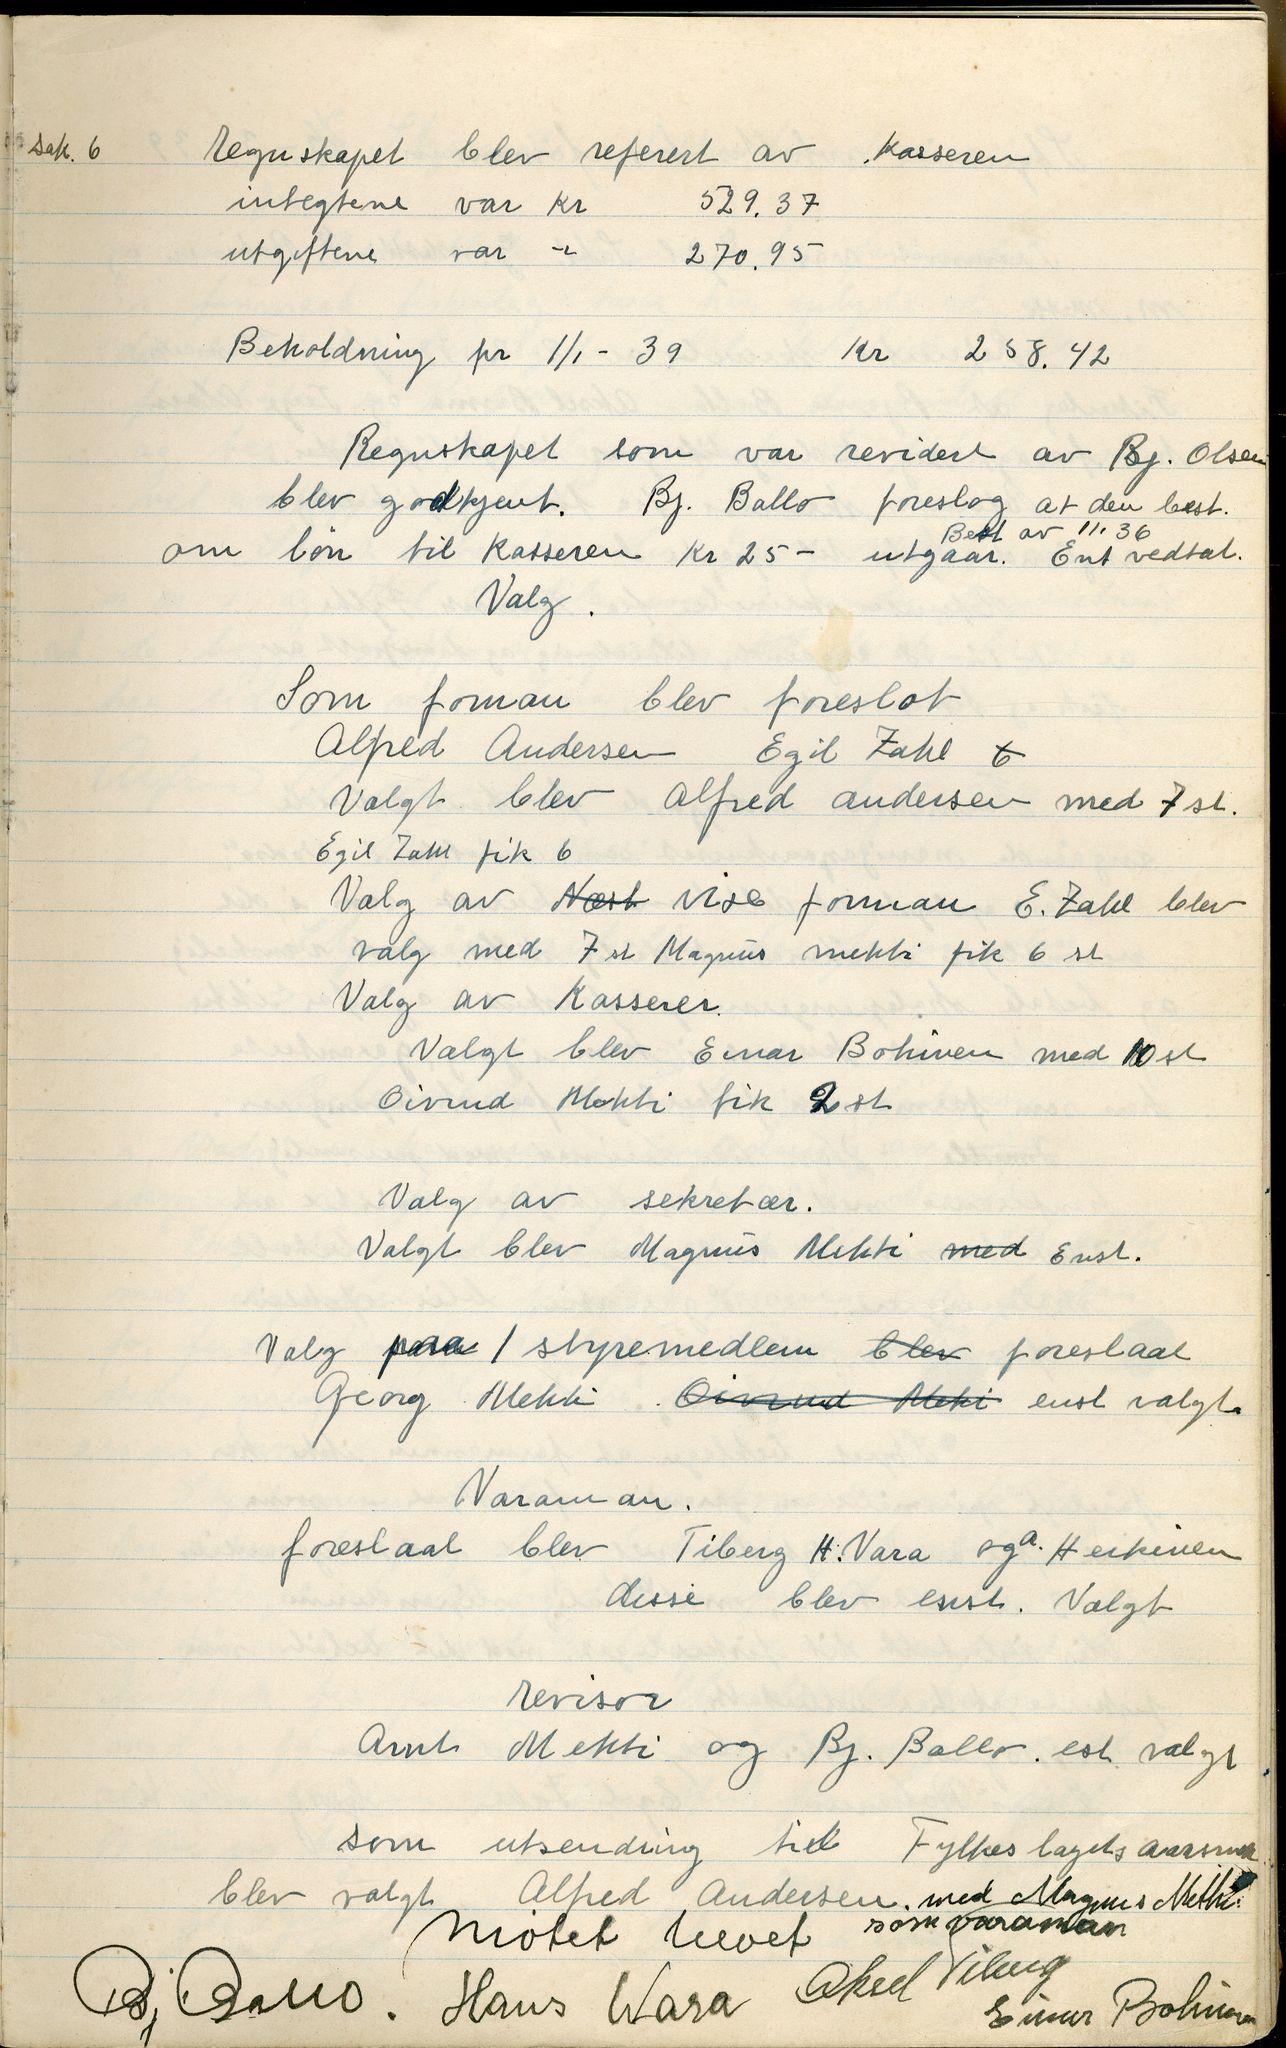 Sak. 6 Regnskapet blev referert av Kasseren
integtene var kr 529.37
utgiftene var -"- 270.95
Beholdning pr 1/1 - 39 Kr 258.42
Regnskapet som var revidert av Bj. Olsen
blev godkjent. Bj. Ballo foreslog at den best.
Best av 11. 36
om lön til Kasseren Kr 25- utgaar. Enst vedtat.
Valg.
Som forman blev foreslot
Alfred Andersen Egil Zahl 6
Valgt blev Alfred Andersen med 7 st.
Egil Zahl fik 6
Valg av Næst vise forman E. Zahl blev
valg med 7 st Magnus Mekti fik 6 st
Valg av Kasserer.
Valgt blev Einar Bohinen med 10 st
Oivind Mekti fik 2 st
Valg av sekretær.
Valgt blev Magnus Mekti med Enst.
Valg paa 1 styremedlem blev foreslaat
Georg Mekti. Oivind Mekti enst valgt.
Varaman.
foreslaat blev Tiberg H. Vara og A. Heikinen
disse blev enst. Valgt
revisor
Arnt Mekti og Bj. Ballo. est valgt
som utsending til Fylkeslagets aarsmøte
blev valgt Alfred Andersen. med Magnus Mekti.
som varaman
Mötet hevet
Bj Ballo. Hans Wara Aksel Tiberg
Einar Bohinen